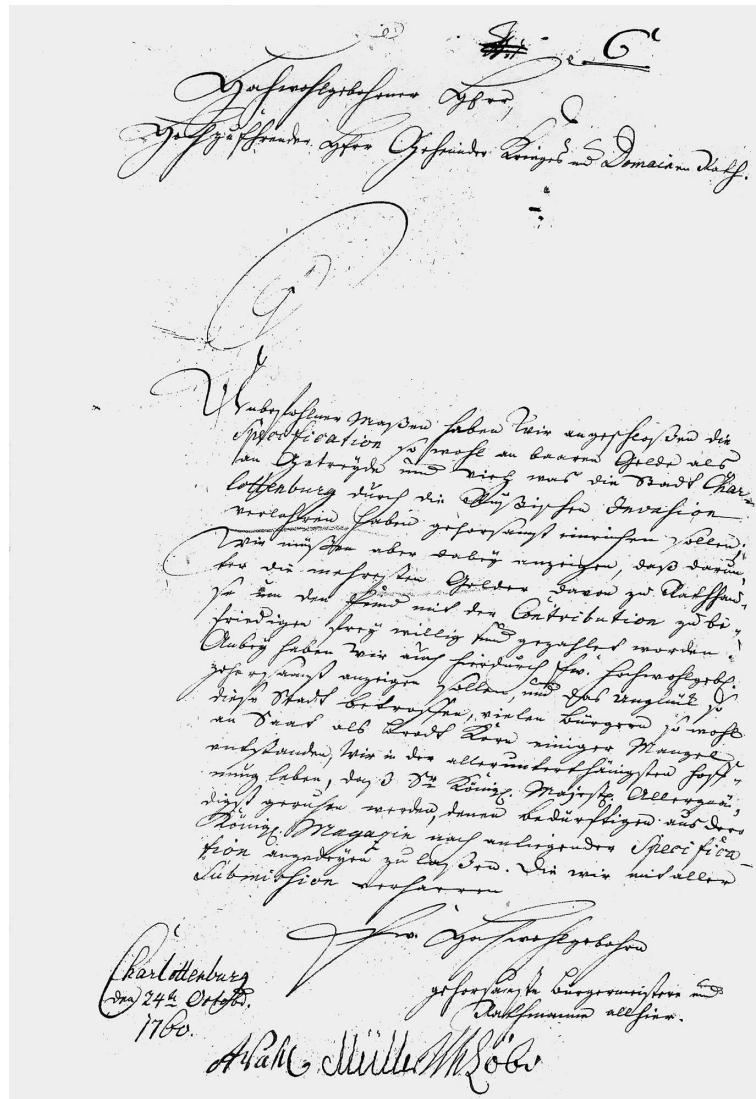 6
Hochwohlgebohrner Herr,
Hochzuehrender Herr Geheimder Krieges und Domainen Rath.
Anbefohlner Maßen haben Wir angeschloßen die
Specification so wohl an baaren Gelde als
an Getreyde und Vieh was die Stadt Char-
lottenburg durch die Rußischen Invasion
verlohren haben gehorsamst einreichen sollen,
Wir müßen aber dabey anzeigen, daß darun-
ter die mehresten Gelder davon zu Rathhau-
se um den Feind mit der Contribution zu be-
friedigen frey willig sind gezahlet worden
Anbey haben Wir auch hierdurch Ew. Hochwohlgeb.
gehorsamst anzeigen sollen, und das Unglück so
diese Stadt betroffen, vielen Bürgern so wohl
an Saat als Brodt Korn einiger Mangel
entstanden, Wir in der allerunterthänigsten Hoff-
nung leben, daß Sr. Königl. Majest. Allergnä-
digst geruhen werden, denen bedürftigen aus dero
Königl. Magazin nach anliegender Specifica-
tion angedeyen zu laßen. Die wir mit aller
Submission verharren
Ew. Hochwohlgebohrn
Charlottenburg
den 24ten Octobr.
1760.
gehorsamste Bürgermeistere und
Rathmanne allhier.
Müller